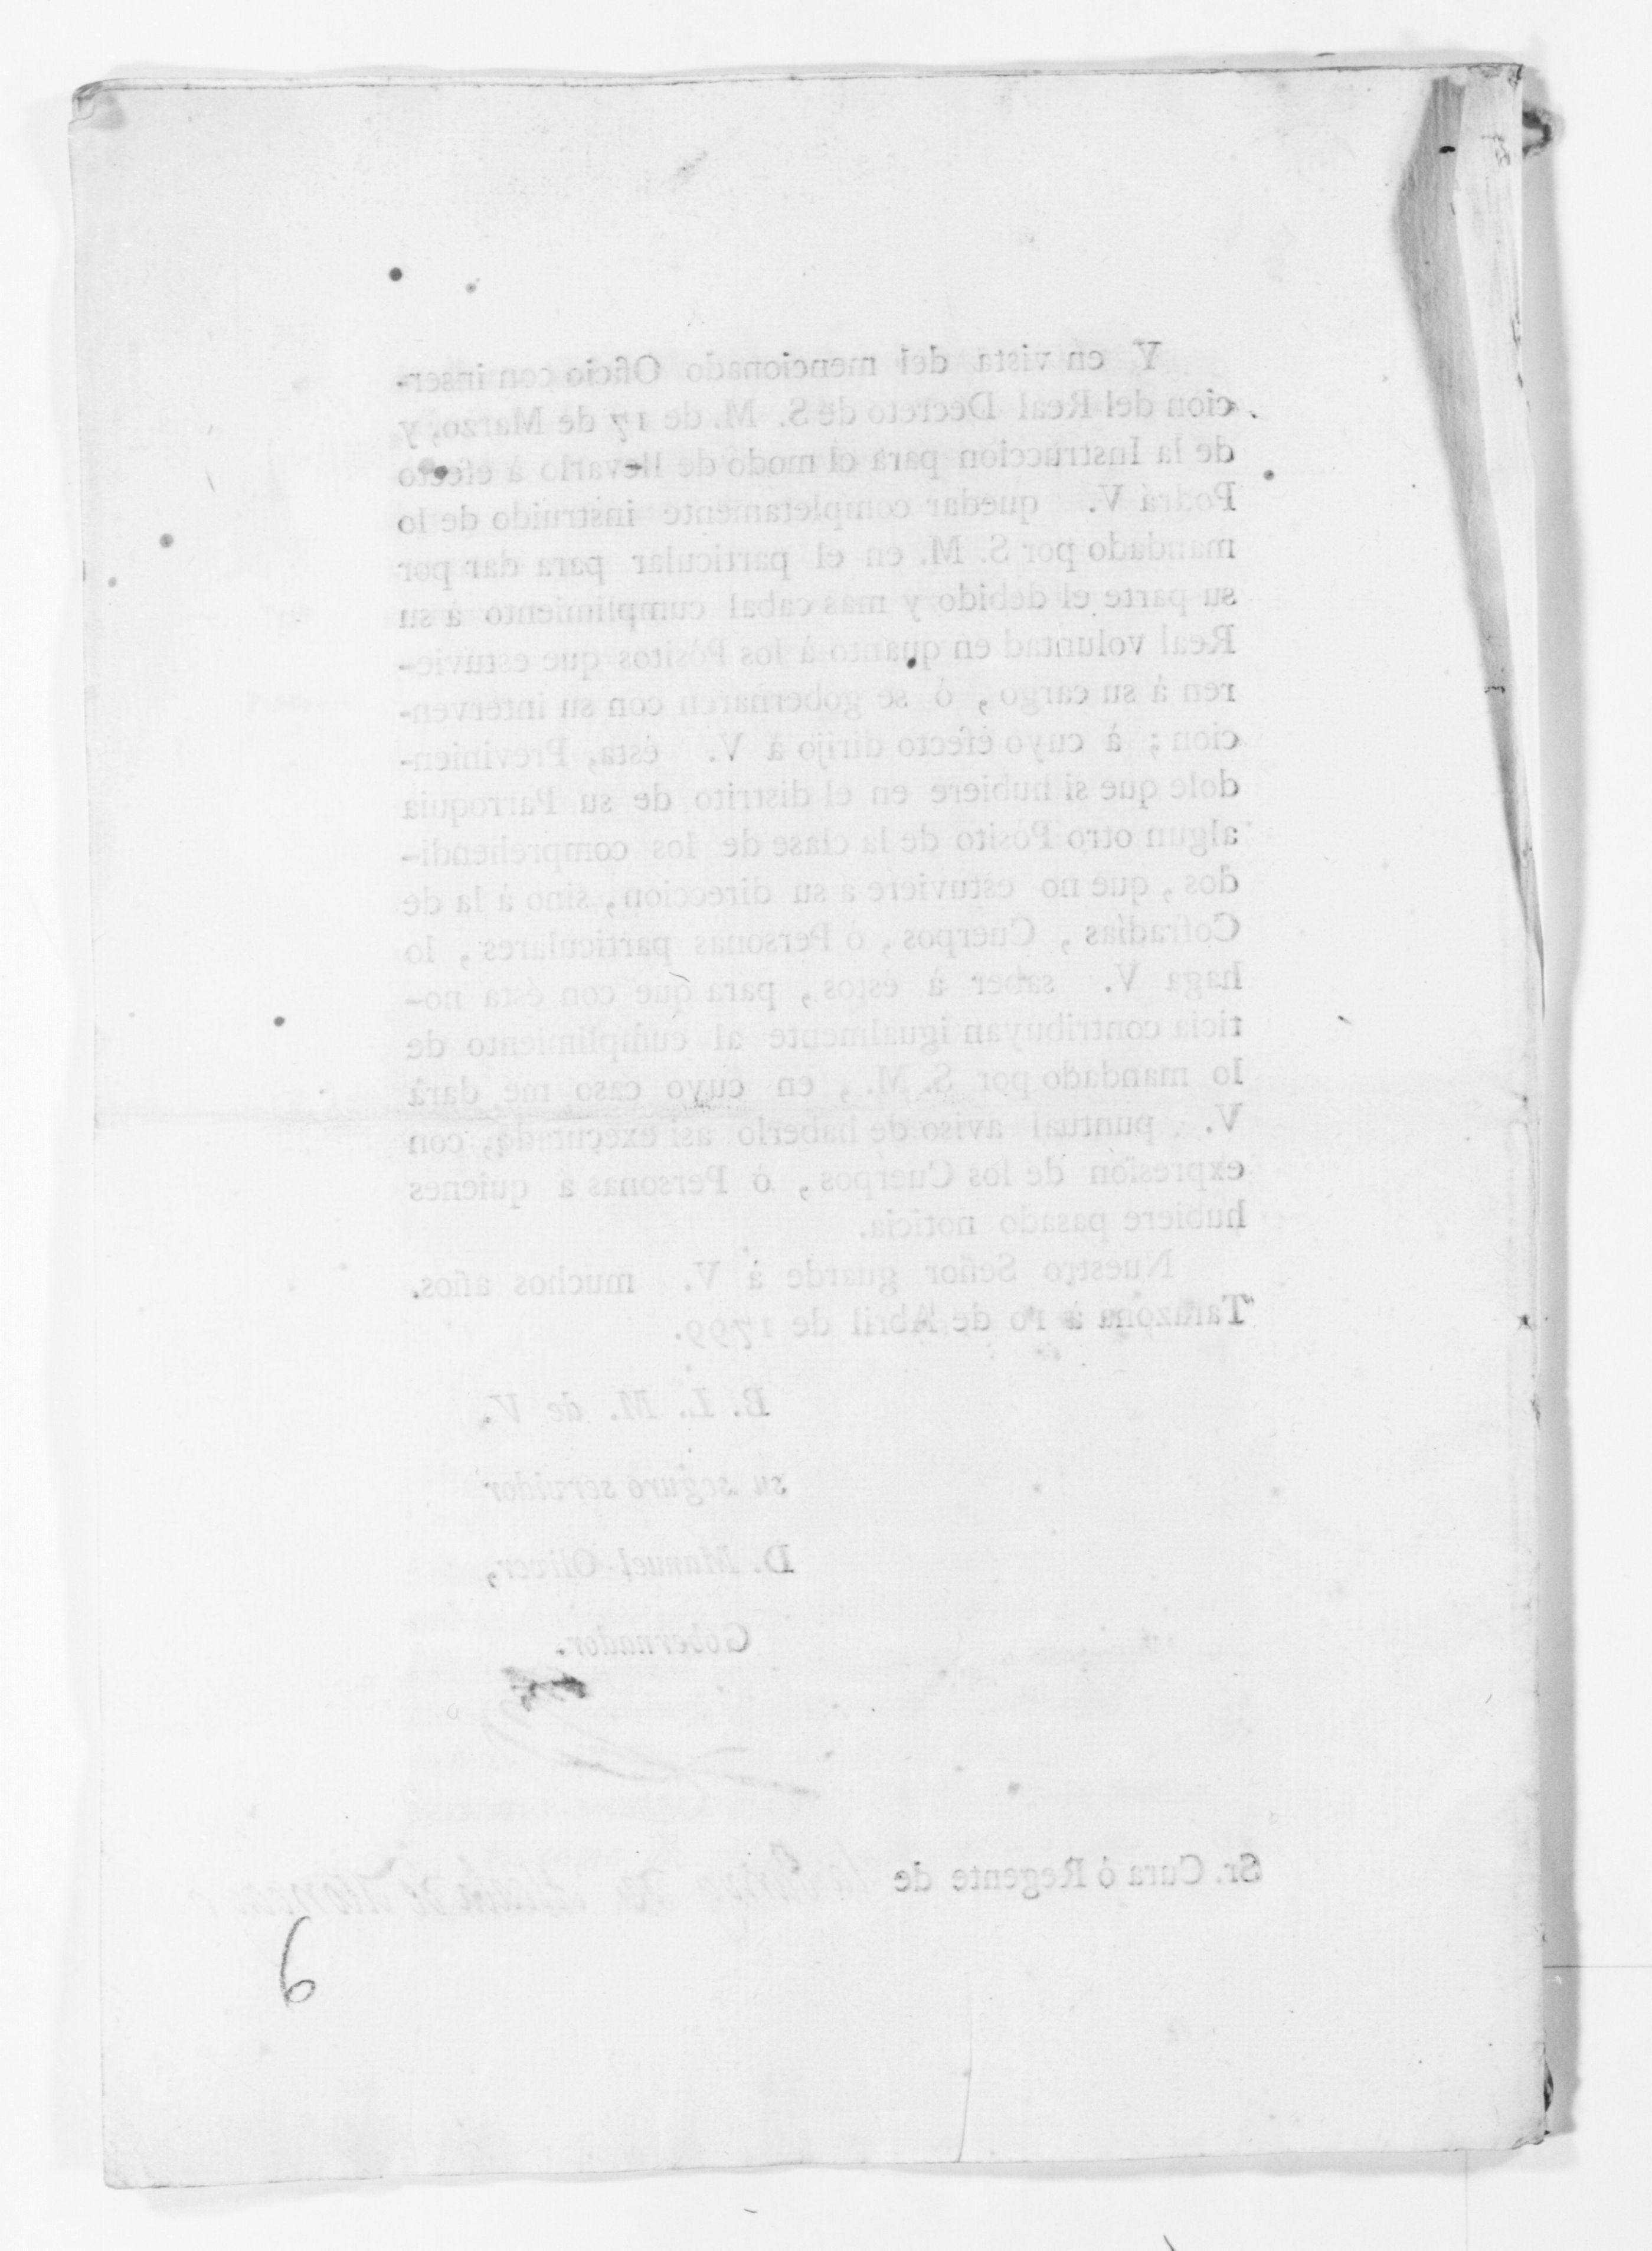 Y en vista del mencionado Oficio con inser-
cion del Real Decreto de S. M. de 17 de Marzo, y
de la Instruccion para el modo de llevarlo à efecto
Podrá V. quedar completamente instruido de lo
mandado por S. M. en el particular para dar por
su parte el debido y mas cabal cumplimiento à su
Real voluntad en quanto à los Pósitos que estuvie-
ren à su cargo, ò se gobernaren con su interven-
cion; à cuyo efecto dirijo à V. ésta, Previnien-
dole que si hubiere en el distrito de su Parroquia
algun otro Pósito de la clase de los comprehendi-
dos, que no estuviere a su direccion, sino à la de
Cofradías, Cuerpos, ò Personas particulares, lo
haga V. saber à éstos, para que con ésta no-
ticia contribuyan igualmente al cumplimiento de
lo mandado por S. M., en cuyo caso me dará
V. puntual aviso de haberlo asi executado, con
expresion de los Cuerpos, ò Personas a quienes
hubiere pasado noticia.
Nuestro Señor guarde à V. muchos años.
Tarazona à 10 de Abril de 1799.
B. L. M. de V.
su seguro servidor
D. Manuel Oliver,
Gobernador.
Sr. Cura ò Regente de
6